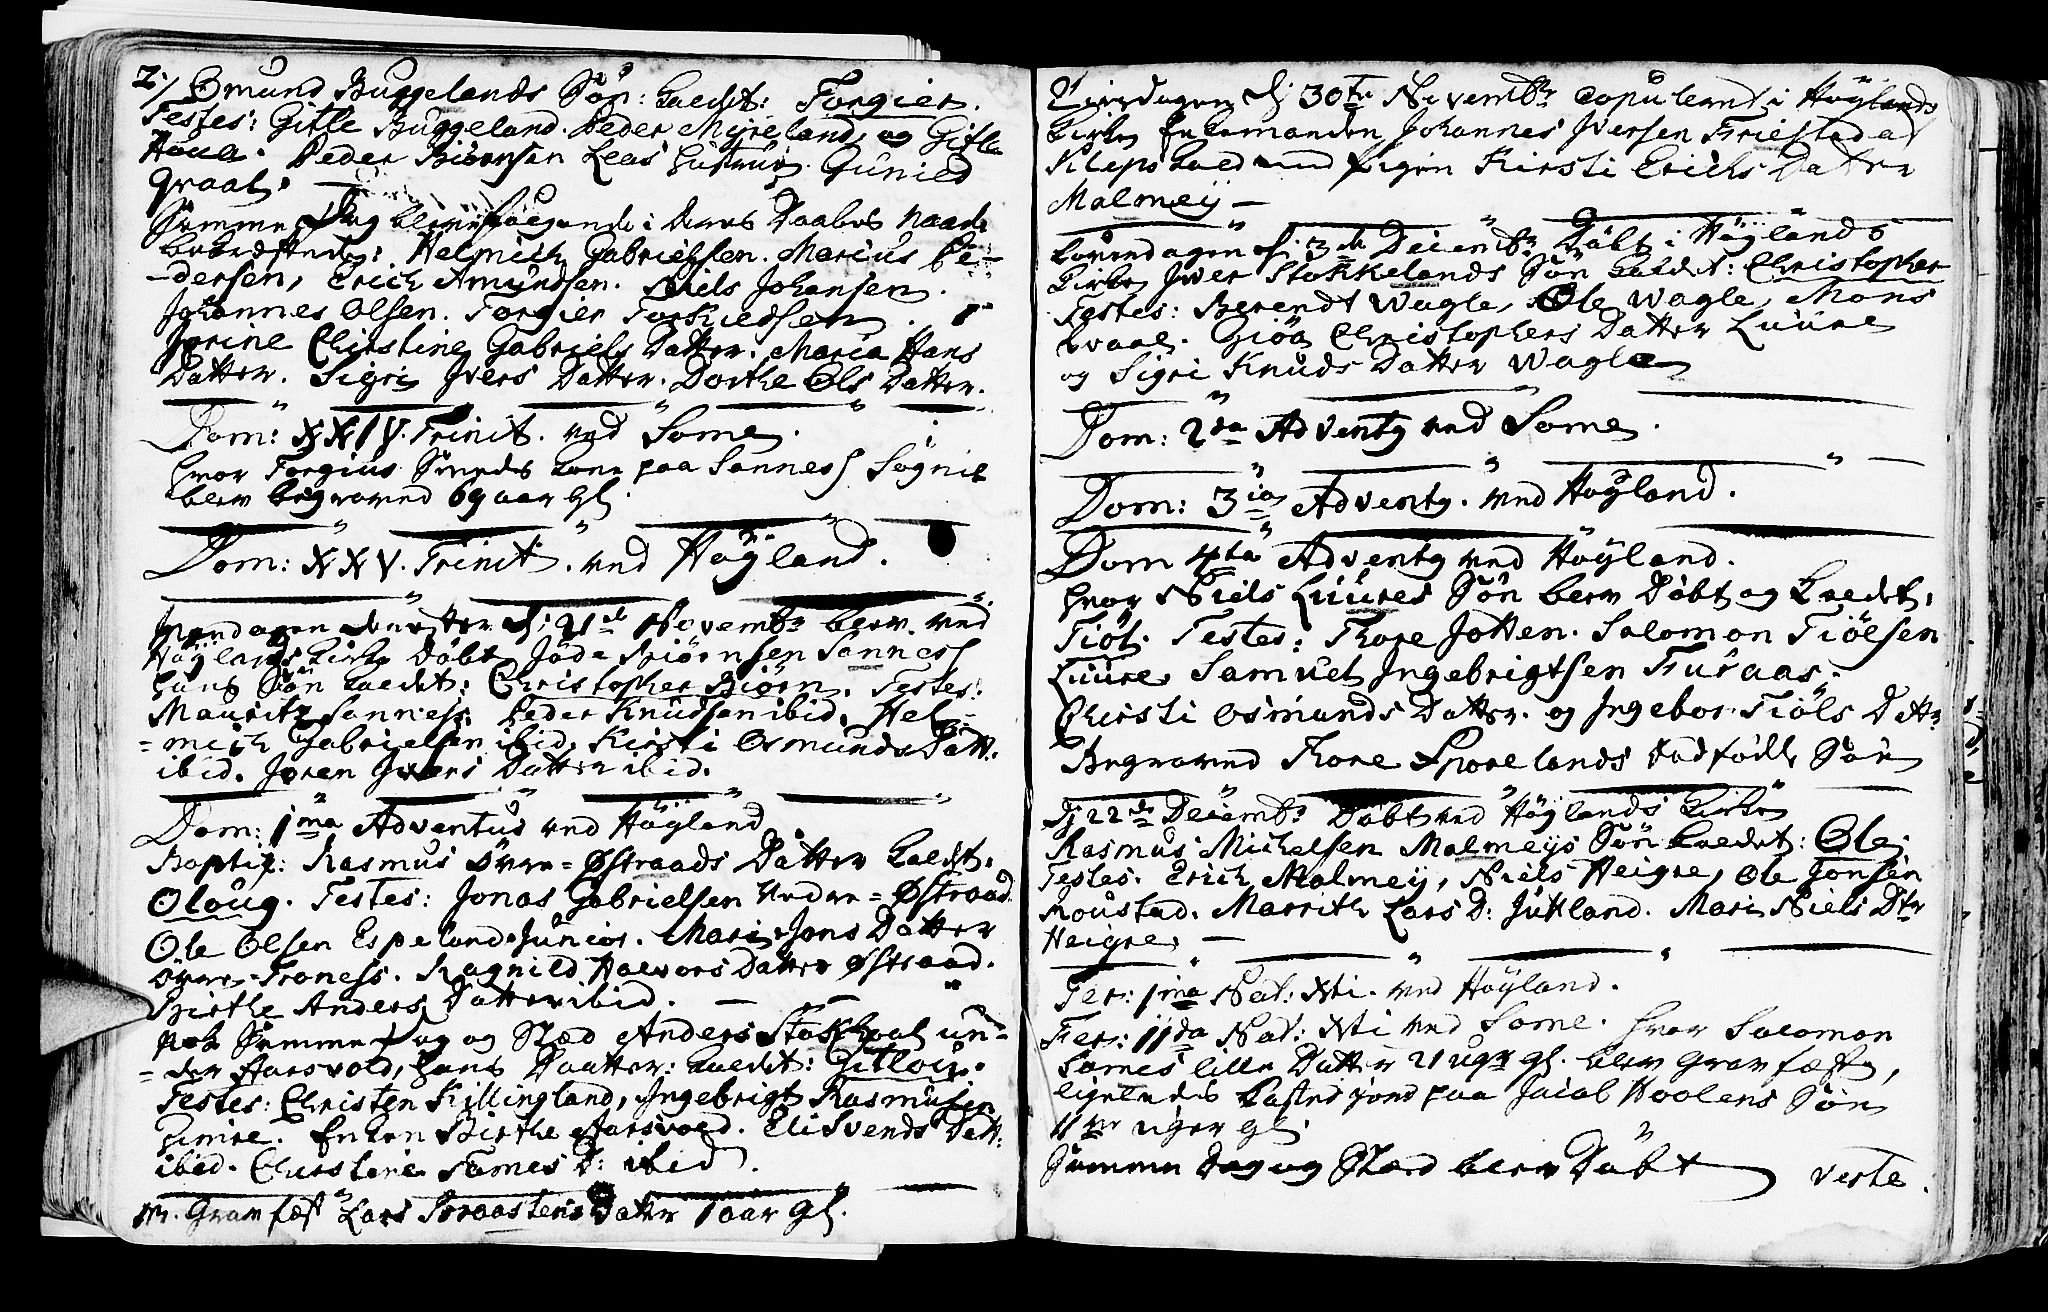 2/ Osmund Buggelands Søn: kaldet: Torgier.
Testes: Gitle Buggeland. Peder Myreland, og Gitle
Hana. Peder Biörnsen Leas Hustrue. Gunild
Graal.
Samme Dag blev følgende i deres Daabes Naade
bekræftede: Helmich Gabrielsen. Marius Pe-
-dersen, Erich Amundsen. Niels Johansen.
Johannes Olsen. Torgier Torkiedsen.
Jorine Christine Gabriels Datter. Maria Hans
Datter. Sigri Ivers Datter. Dorthe Ols Datter.
Dom: XXIV. Trinit. ved Some.
hvor Torgius Smeds kone paa Sanness Sognet
blev begraved 69 aar gl.
Dom: XXV. Trinit. ved Höyland.
Mandagen derefter d: 21de Novembr blev ved
Höylands kirke döbt Jöde Biörnsen Sanness
hans Sön kaldet: Christopher Biörn. Testes:
Mauritz Sanness. Peder Knudsen ibid. Hel-
=mich Gabrielsen ibid. Kirsti Osmunds Datt:
ibid. Joren Ivers Datter ibid.
Dom: 1ma Adventus ved Höyland
Baptiz: Rasmus Övre=Østraads Datter kaldt.
Oloug. Testes: Jonas Gabrielsen Nedre=Østraad.
Ole Olsen Espeland Junior. Mari Jons Datter
Övre=Troness. Ragnild Halvors Datter Østraad.
Birthe Anders Datter ibid.
Nok Samme Dag og Stæd Anders Stokholt un-
=der Aarsvold, hans Daatter: kaldet: Gitlou.
Testes: Christen Killingland, Ingebrigt Rasmusen
Enken Birthe Aarsvold. Eli Svends Datt:
ibid. Christine Tames D: ibid.
Gravfæst Lars Braastens Dater 1 aar gl.
Tiirsdagen d: 30te Novembr Copulerud i Höylands
Kirke Enkemanden Johannes Iversen Friestad af
Kleps Gield med Pigen Kirsti Erichs Datter
Malmeij
Löverdagen d: 3de Decembr Döbt i Höylands
Kirke Iver Stokkelands Sön kaldet: Christopher
Testes: Berendt Wagle, Ole Wagle, Mons
Qvaal. Giöa Christophers Datter Luure
og Sigri Knuds Datter Wagle
Dom: 2da Adventq ved Some.
Dom: 3ia Adventq. ved Höyland.
Dom 4ta Adventq ved Höyland.
hvor Niels Luures Sön blev Döbt og kaldet,
Tiöl. Testes: Thore Jotten. Salomon Tiölsen
Luure, Samuel Ingebrigtsen Furaas.
Christi Osmunds Datter. og Ingebor Tiöls Dattr
Begraved Thore Sporelands dödfödde Sön
D: 22de Decembr Döbt ved Höylands Kirke
Rasmus Michelsen Malmeijs Sön kaldet: Ole
Testes. Erich Malmeij, Niels Heigre, Ole Jonsen
Roustad. Marrith Lars D: Jutland. Mari Niels Dtr
Heigre.
Fer: 1ma Nat: Xti. ved Höyland.
Fer: 11da Nat: Xti ved Some. hvor Salomon
Somes lille Datter 21 ugr gl. blev gravfæst,
ligeledes kasted jord paa Jacob Hoolens Sön
11 uger gl.
Samme Dag og Stæd blev Döbt
Veste.